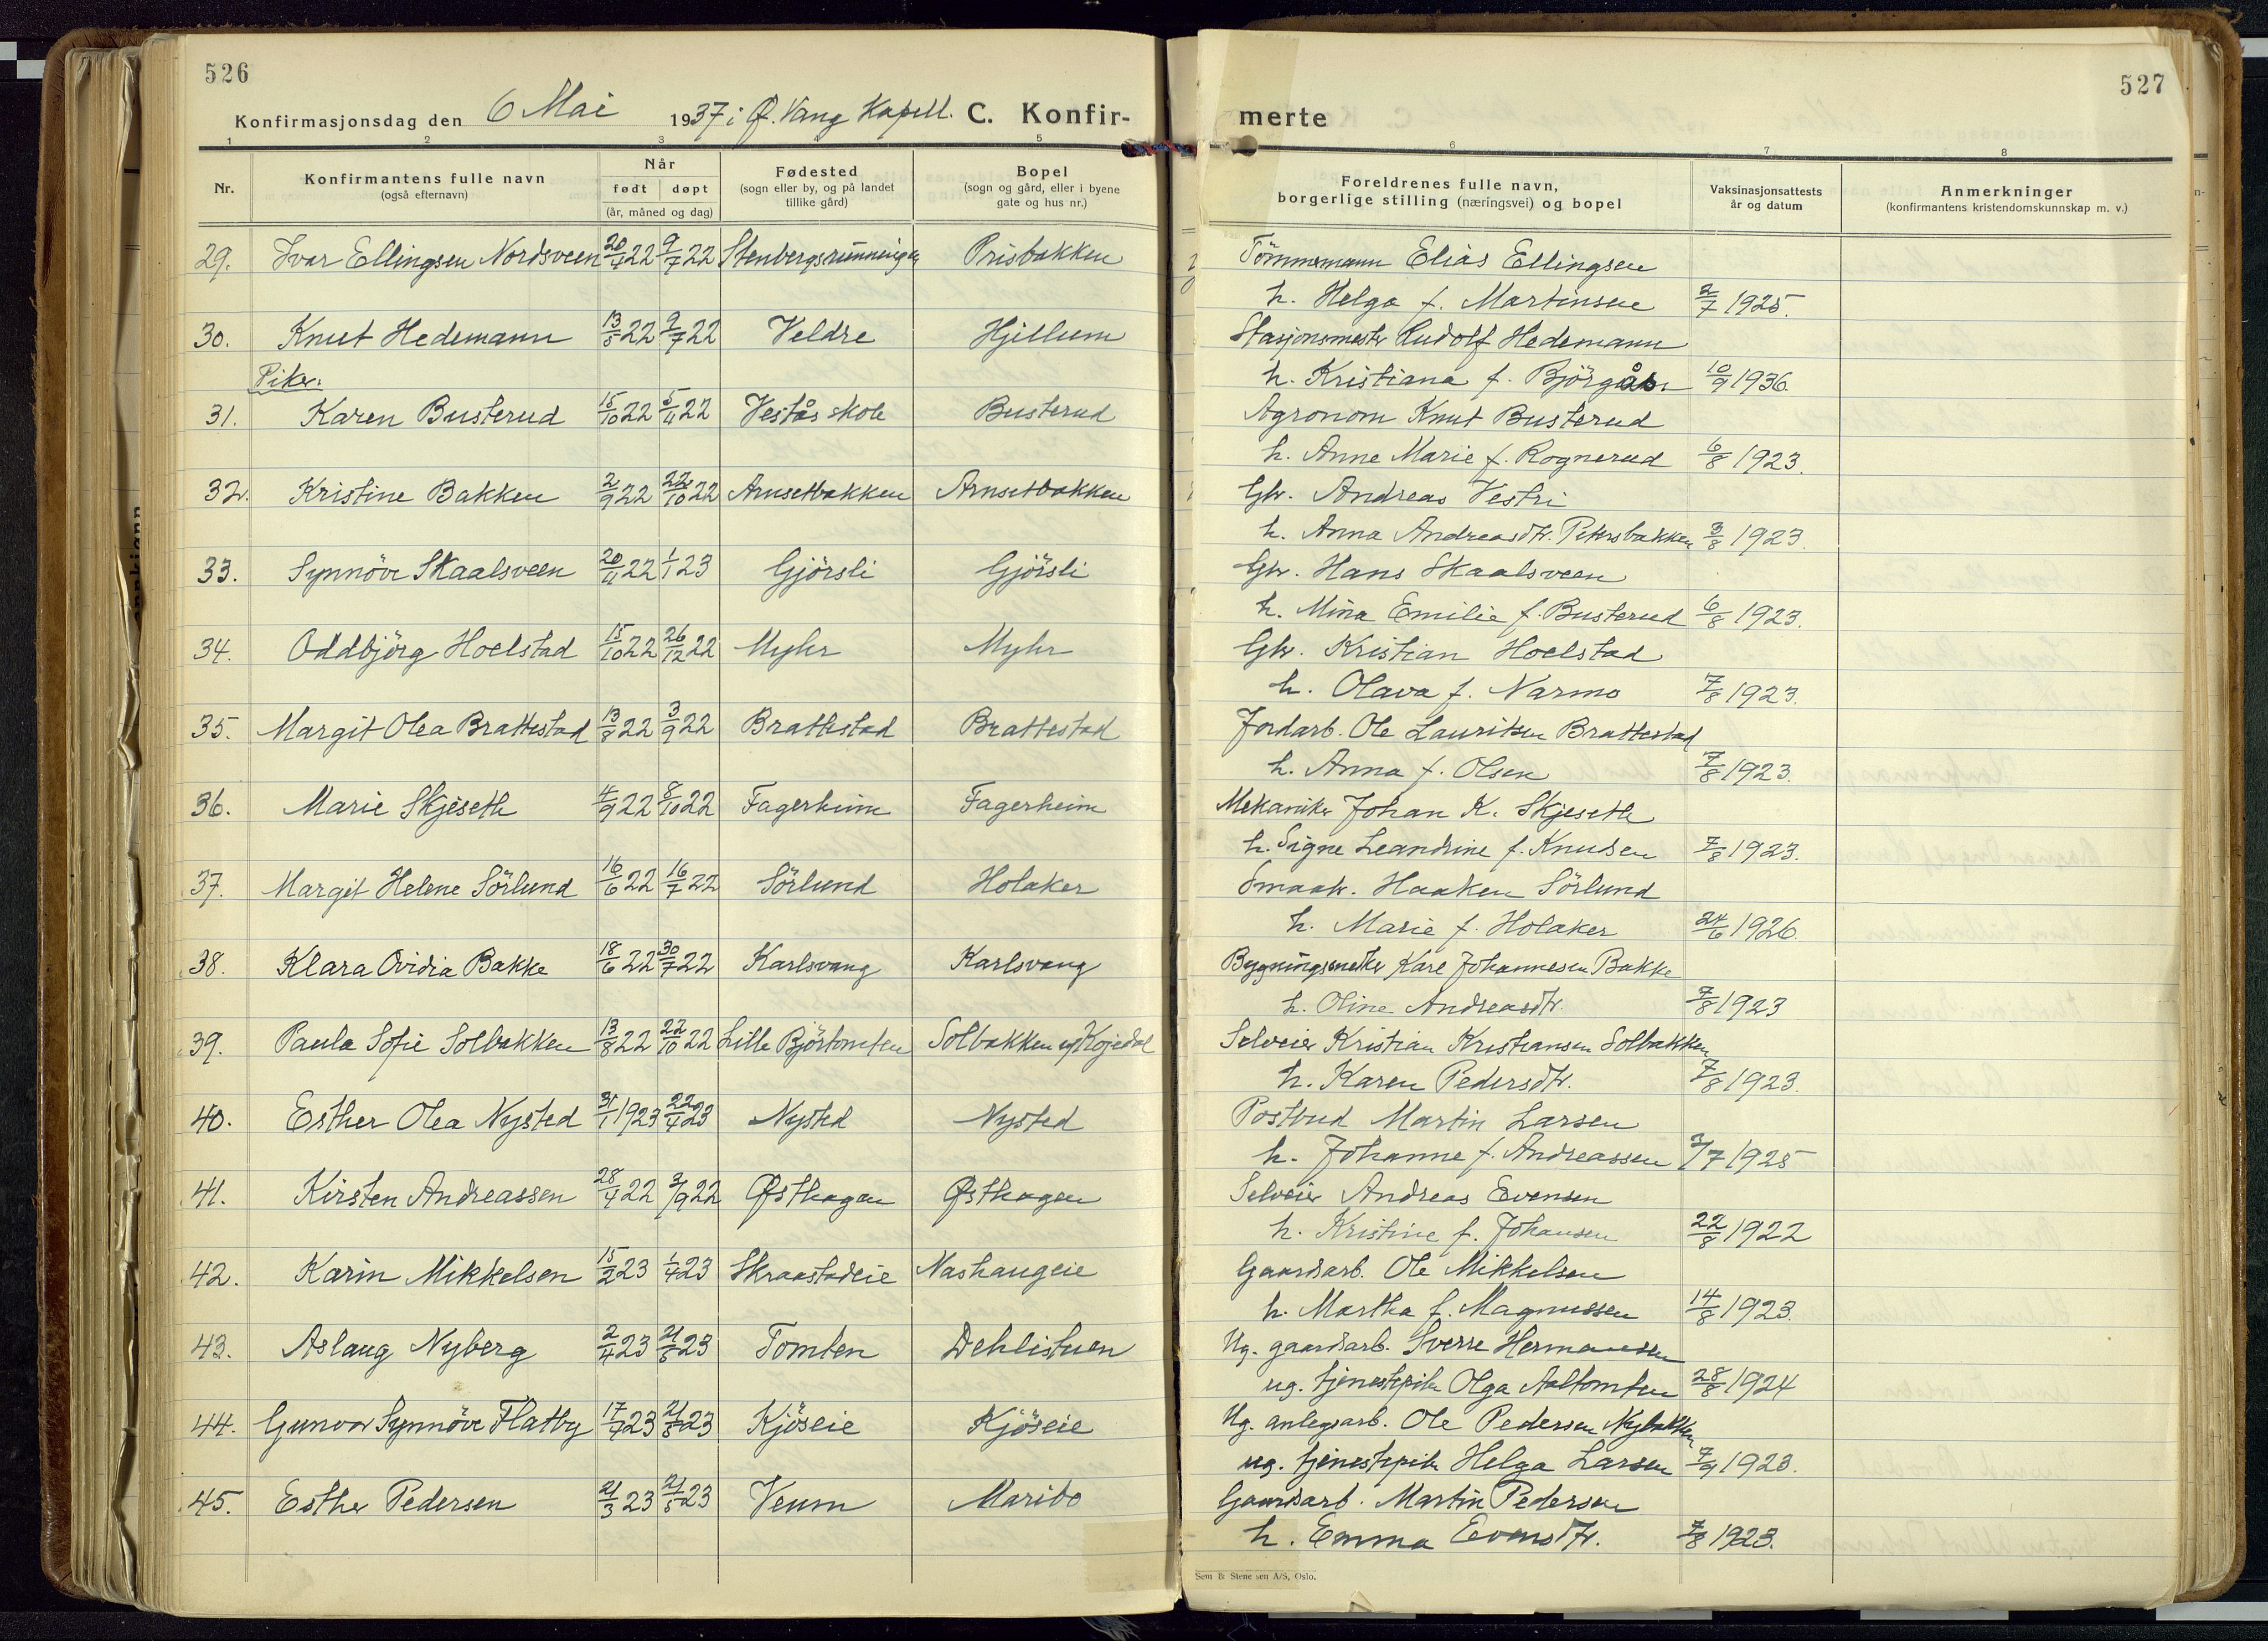 526
Konfirmasjonsdag den 6 Mai 1937 i Ø. Vang Kapell. C. Konfir-
1 2 3 5
Nr.
Konfirmantens fulle navn
(også efternavn)
Når
født døpt
(år, måned og dag)
Fødested
(sogn eller by, og på landet
tillike gård)
Bopel
(sogn og gård, eller i byene
gate og hus nr.)
29. Ivar Ellingsen Nordsveen 20/4 22 9/7 22 Stenbergsrünningen Prisbakken
30. Knut Hedemann 13/5 22 9/7 22 Veldre Hjellum
Piker.
31. Karen Busterud 15/10 22 5/11 22 Vestås skole Busterud
32. Kristine Bakken 2/9 22 22/10 22 Arnsetbakken Arnsetbakken
33. Synnöve Skaalsveen 20/11 22 1/1 23 Gjörsli Gjörsli
34. Oddbjörg Hoelstad 15/10 22 26/12 22 Myhr Myhr
35. Margit Olea Brattestad 13/8 22 3/9 22 Brattestad Brattestad
36. Marie Skjeseth 4/9 22 8/10 22 Fagerheim Fagerheim
37. Margit Helene Sörlund 16/6 22 16/7 22 Sörlund Holaker
38. Klara Ovidia Bakke 18/6 22 30/7 22 Karlsvang Karlsvang
39. Paula Sofie Solbakken 13/8 22 22/10 22 Lille Björtomten Solbakken
40. Esther Olea Nysted 31/1 1923 22/4 23 Nysted Nysted
41. Kirsten Andreassen 28/4 22 3/9 22 Østhagen Østhagen
42. Karin Mikkelsen 15/2 23 1/4 23 Skraastadeie Nashaugeie
43. Aslaug Nyberg 2/4 23 21/5 23 Tomten Dehlistuen
44. Gunvor Synnöve Flatby 17/4 23 21/5 23 Kjöseie Kjöseie
45. Esther Pedersen 21/3 23 21/5 23 Veum Maribo
527
merte
6 7 8
Foreldrenes fulle navn,
borgerlige stilling (næringsvei) og bopel
Vaksinasjonsattests
år og datum
Anmerkninger
(konfirmantens kristendomskunnskap m. v.)
Tömmermann Elias Ellingsen
h. Helga f. Martinsen 2/7 1925.
Stasjonsmester Rudolf Hedemann
h. Kristiana f. 10/9 1936.
Agronom Knut Busterud
h. Anne Marie f. Rognerud 6/8 1923.
Gbr. Andreas Vestri
h. Anna Andreasdtr. Petersbakken 3/8 1923.
Gbr. Hans Skaalsveen
h. Mina Emilie f. Busterud 6/8 1923.
Gbr. Kristian Hoelstad
h. Olava f. Narmo 7/8 1923.
Jordarb. Ole Lauritsen Brattestad
h. Anna f. Olsen 7/8 1923.
Mekaniker Johan K. Skjeseth
h. Signe Leandrine f. Knudsen 7/8 1923.
Smaabr. Haaken Sörlund
h. Marie f. Holaker 24/6 1926.
Bygningsmester Kåre Johannesen Bakke
h. Oline Andreasdtr. 7/8 1923
Selveier Kristian Kristiansen Solbakken
h. Karen Pedersdtr. 7/8 1923.
Postbud Martin Larsen
h. Johanne f. Andreassen 2/7 1925
Selveier Andreas Evensen
h. Kristine f. Johansen 22/8 1922
Gaardsarb. Ole Mikkelsen
h. Martha f. Magnussen 14/8 1923.
Ug. gaardsarb. Sverre Hermansen
ug. tjenestepike Olga Aaltomten 28/8 1924
Ug. anlegsarb. Ole Pedersen Nybakken
ug. tjenestepike Helga Larsen 7/9 1923.
Gaardsarb. Martin Pedersen
h. Emma Evensdtr. 7/8 1923.
Sem & Stenersen A/S, Oslo.